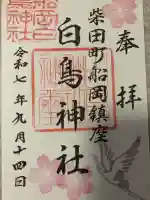 奉拝
柴田町船岡鎮座
白鳥神社
令和七年九月十四日